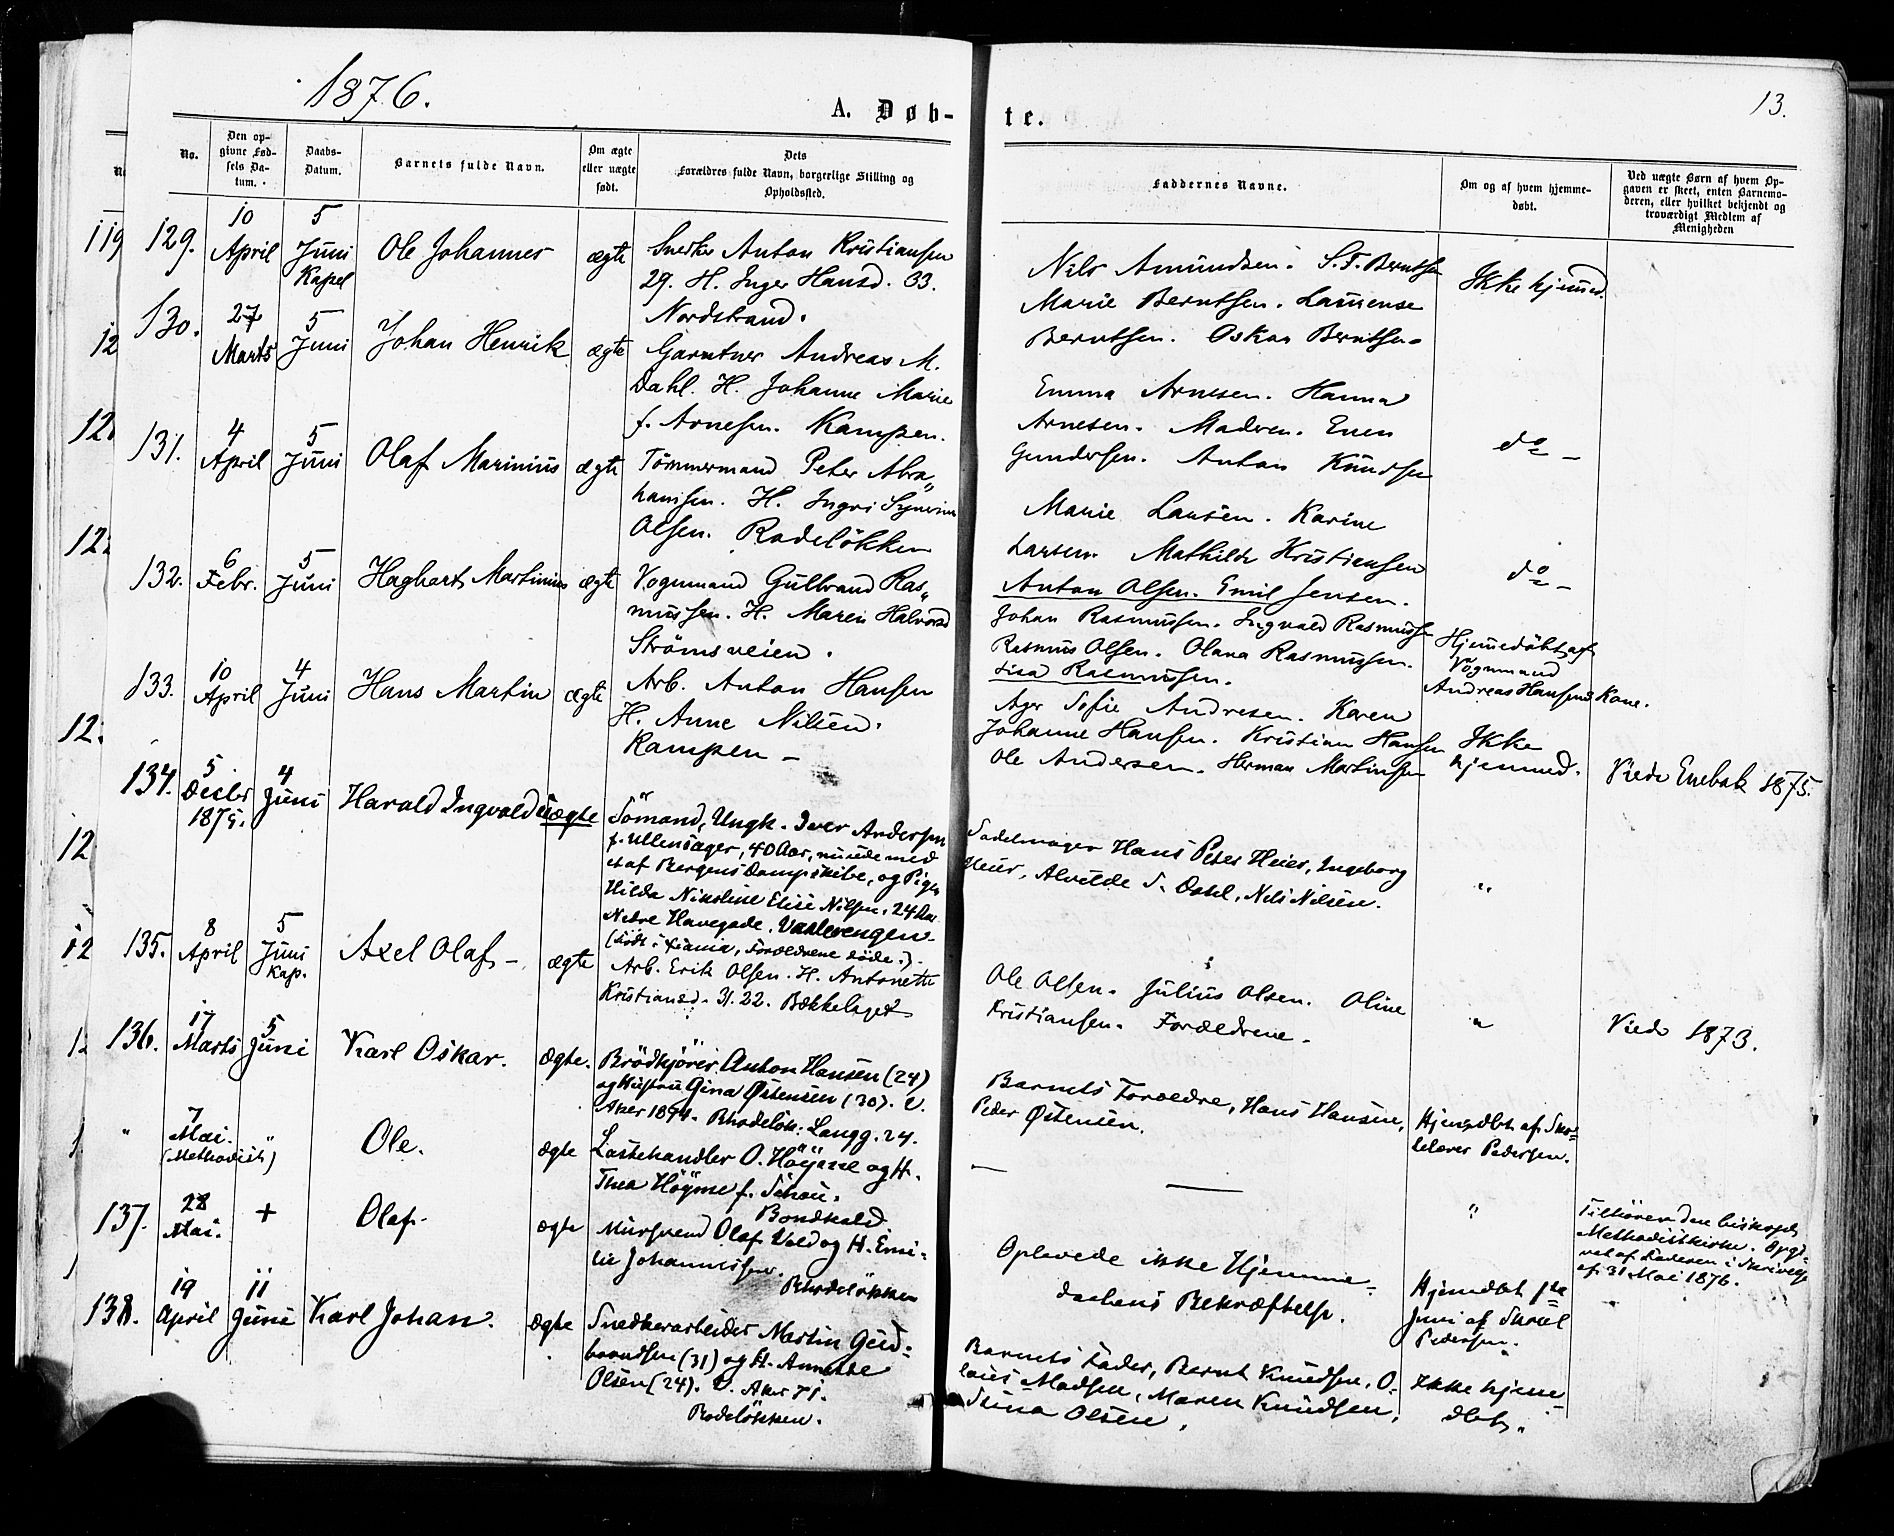 1876.
A. Døb-
te.
13.
No.
Den op-
givne Fød-
sels Da-
tum.
Daabs-
Datum.
Barnets fulde Navn.
Om ægte
eller uægte
født.
Dets
Forældres fulde Navn, borgerlige Stilling og
Opholdssted.
Faddernes Navne.
Om og af hvem hjemme-
døbt.
Ved uægte Børn af hvem Op-
gaven er skeet, enten Barnemo-
deren, eller hvilket bekjendt og
troværdigt Medlem af
Menigheden
129.
10
April
5
Juni
Kapel
Ole Johannes
ægte
Snedker Anton Kristiansen
29. H. Inger Hansd. 33.
Nordstrand.
Nils Amundsen. S. F. Berntsen
Marie Berntsen. Laurense
Berntsen. Oskar Berntsen
Ikke hjemmd.
130.
27
Marts
5
Juni
Johan Henrik
ægte
Gartner Andreas M.
Dahl. H. Johanne Marie
f. Arnesen. Kampen.
Emma Arnesen. Hanna
Arnesen. Madren. Even
Gundersen. Anton Knudsen
do -
131.
4
April
5
Juni
Olaf Marinius
ægte
Tömmermand Peter Abra„
hamsen. H. Ingri
Olsen. Rodelökken
Marie Larsen. Karine
Larsen. Mathilde Kristiensen
Anton Olsen. Emil Jensen.
do -
132.
6
Febr.
5
Juni
Haghart Martinius
ægte
Vognmand Gulbrand Ras„
mussen. H. Maren Halvorsd
Strömsveien.
Johan Rasmussen. Ingvald Rasmussen
Rasmus Olsen. Olava Rasmussen.
Lisa Rasmussen.
Hjemmedöbt af
Vognmand
Andreas Hansens Kone.
133.
10
April
4
Juni
Hans Martin
ægte
Arb. Anton Hansen
H. Anne Nilsen.
Kampen -
Sofie Andresen. Karen
Johanne Hansen. Kristian Hansen
Ole Andersen. Herman Martinsen
Ikke
hjemmd.
Viede Enebak 1875.
134.
5
Decbr
1875.
4
Juni
Harald Ingvald
uægte
Sömand, Ungk. Iver Andersen
f. Ullensager, 40 Aar, med
et af Bergens Dampskibe, og Pige
Hilda Nikoline Elise Nilsen, 24 Aar
Nedre Havegade. Vaalerengen
(Födt i Xiania, Forældrene döde.)
Sadelmager Hans Peter Heier, Ingeborg
Heier, Alvilde S. Dahl, Nils Nilsen.
"
135.
8
April
5
Juni
Kap.
Axel Olaf -
ægte
Arb. Erik Olsen. H. Antonette
Kristiansd. 31. 22. Bækkelaget
Ole Olsen. Julius Olsen. Oline
Kristiansen. Forældrene.
"
Viede 1873.
136.
17
Marts
5
Juni
Karl Oskar.
ægte.
Brödkjörer Anton Hansen (24)
og Hustru Gina Østensen (30). V.
Aker 1874. Rhodelök: Langg. 24.
Barnets Forældre, Hans Hansen,
Peder Østensen.
Hjemdbt af Sko-
lelærer Pedersen.
"
7
Mai.
(Methodist)
"
Ole.
ægte
Lastehandler O. Höyme og H.
Thea Höyme f. Schou.
—
"
Tilhörer den biskopl.
Methodistkirke. Opgi-
vet af Faderen i Skrivelse
af 31 Mai 1876.
137.
28
Mai.
+
Olaf.
ægte
Mursvend Olaf Vold og H. Emi-
lie Johannessen.
Rhodelökken
Oplevede ikke Hjemme-
daabens Bekræftelse.
Hjemdbt 1ste
Juni af Skoel
Pedersen.
138.
19
April
11
Juni
Karl Johan.
ægte
Snedkerarbeider Martin Gud-
brandsen (31) og H. Annette
Olsen (24). V. Aker 71.
Rodelökken.
Barnets Fader, Bernt Knudsen, O-
laus Madsen, Maren Knudsen,
Olsen,
Ikke hjem-
dbt.